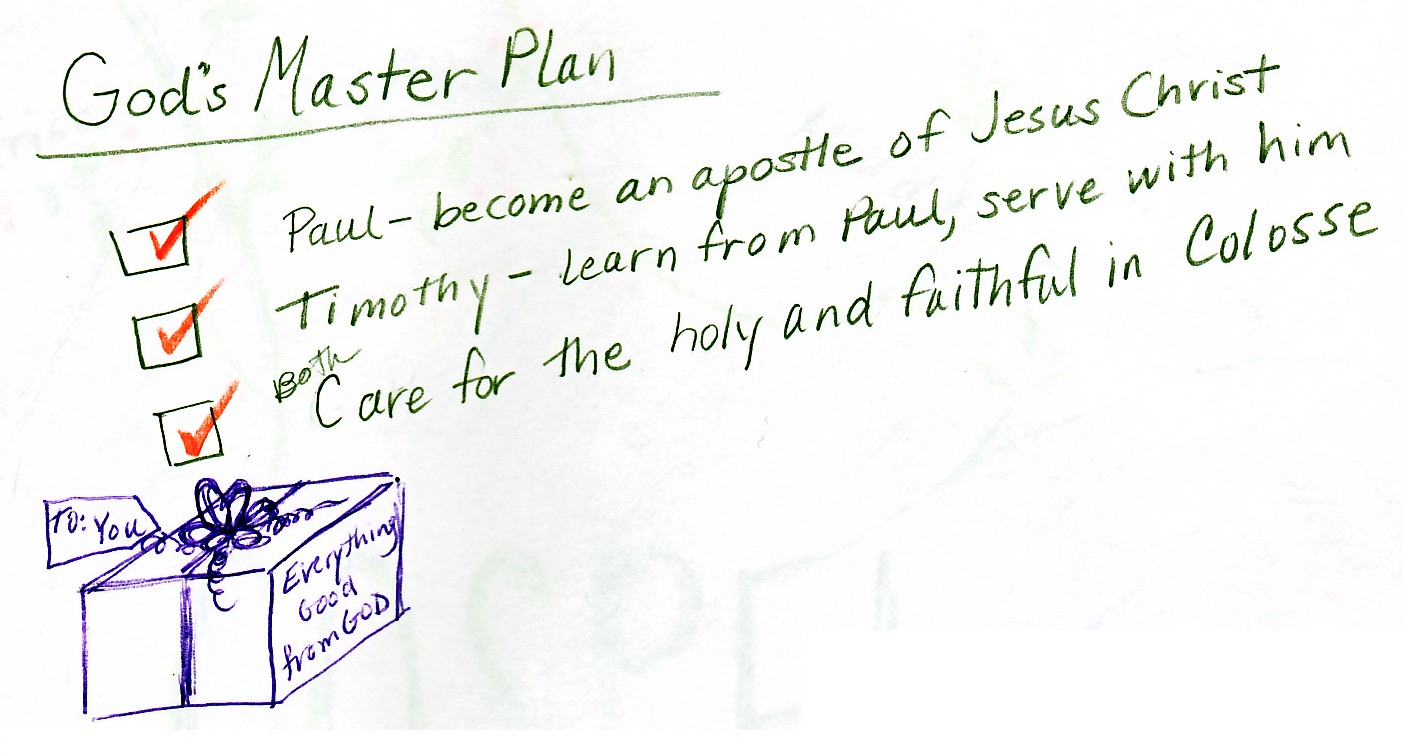 God's Master Plan
Paul - become an apostle of Jesus Christ
Timothy - learn from Paul, serve with him
Both
Care for the holy and faithful in Colosse
To: You
Everything
Good
from GOD